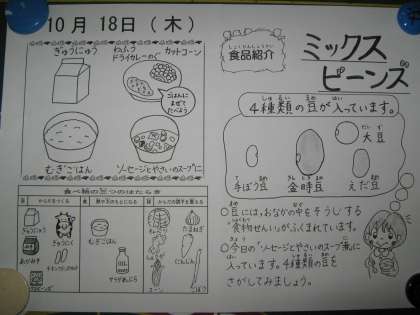 10月 18日（木）
ぎゅうにゅう
わふう
ドライカレーのぐ
カットコーン
ごはんに
まぜて
たべよう
むぎごはん
ソーセージとやさいのスープに
食べ物の三つのはたらき
ぎゅうにゅう
ぎゅうにく
むぎごはん
たまねぎ
にんじん
コーン
しょくひんしょうかい
食品紹介
ミックス
ビーンズ
4種類の豆が入っています。
だいず
大豆
手ぼう豆
金時豆
えだ豆
○豆には、おなかの中をそうじする
「食物せんい」がふくまれています。
○今日の「ソーセージとやさいのスープ煮」に
入っています。4種類の豆を
さがしてみましょう。